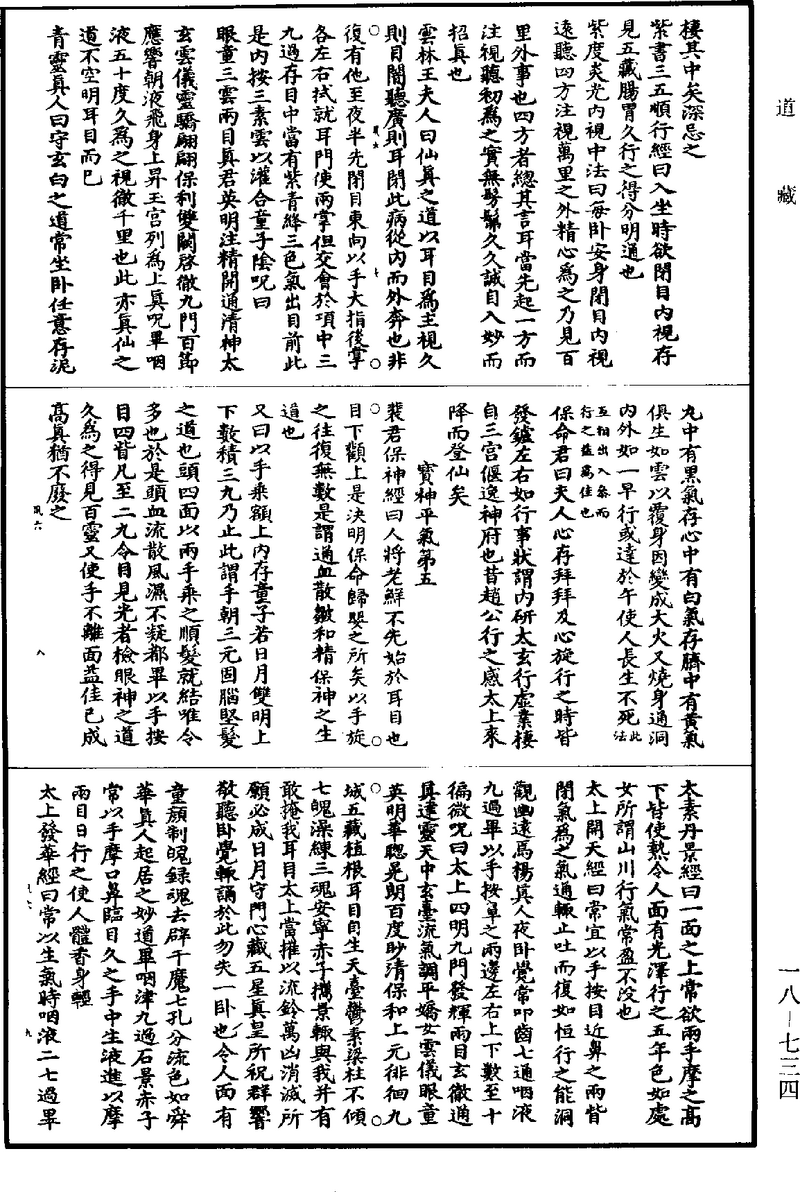 道藏
棲其中矣深忌之
紫書三五順行經曰入坐時欲閉目內視存
見五藏腸胃久行之得分明通也
紫度炎光內視中法曰每卧安身閉目內視
遠聽四方注視萬里之外精心為之乃見百
里外事也四方者總其言耳當先起一方而
注視聽初為之實無髣髴久久誠自入妙而
招真也
雲林王夫人曰仙真之道以耳目為主視久
則目闇聽廣則耳閉此病從內而外奔也非
復有他至夜半先閉目東向以手大指後掌
各左右拭就耳門使兩掌但交會於項中三
九過存目中當有紫青絳三色氣出目前此
是內按三素雲以灌合童子陰呪曰
眼童三雲兩目真君英明注精開通清神太
玄雲儀靈驕翩翩保利雙闕啓徹九門百節
應響朝液飛身上昇玉宮列為上真呪畢咽
液五十度久為之視徹千里也此亦真仙之
道不空明耳目而已
青靈真人曰守玄白之道常坐卧任意存泥
丸中有黑氣存心中有白氣存臍中有黃氣
俱生如雲以覆身因變成大火又燒身通洞
內外如一旱行或達於午使人長生不死此法
互相出入㕘而
行之益為佳也
保命君曰夫人心存拜拜及心旋行之時皆
發鑪左右如行事狀謂內研太玄行虛業棲
自三宮偃逸神府也昔趙公行之感太上來
降而登仙矣
寶神平氣第五
裴君保神經曰人將老鮮不先始於耳目也
目下顴上是決明保命歸嬰之所矣以手旋
之往復無數是謂通血散皺和精保神之生
道也
又曰以手乘額上內存童子若日月雙明上
下數積三九乃止此謂手朝三元固腦堅髮
之道也頭四面以兩手乘之順髮就結唯令
多也於是頭血流散風濕不凝都畢以手按
目四眥凡至二九令目見光者檢眼神之道
久為之得見百靈又使手不離面益佳已成
高真猶不廢之
風六
八
太素丹景經曰一面之上常欲兩手摩之高
下皆使熱令人面有光澤行之五年色如處
女所謂山川行氣常盈不没也
太上開天經曰常宜以手按目近鼻之兩眥
閉氣為之氣通輒止吐而復如恒行之能洞
觀幽遠馬楊真人夜卧覺常叩齒七通咽液
九過畢以手按鼻之兩邊左右上下數至十
徧微呪曰太上四明九門發輝兩目玄徹通
真達靈天中玄臺流氣調平嬌女雲儀眼童
英明華聰晃朗百度眇清保和上元徘徊九
城五藏植根耳目自生天臺鬱素梁柱不傾
七魄澡練三魂安寧赤子攜景輒與我并有
敢掩我耳目太上當摧以流鈴萬凶消滅所
願必成日月守門心藏五星真皇所祝群響
敬聽卧覺輒誦於此勿失一卧也令人面有
童顔制魄録魂去辟千魔七孔分流色如舜
華真人起居之妙道畢咽津九過石景赤子
常以手摩口鼻臨目久之手中生液進以摩
兩目日行之使人體香身輕
太上發華經曰常以生氣時咽液二七過畢
一八－七三四